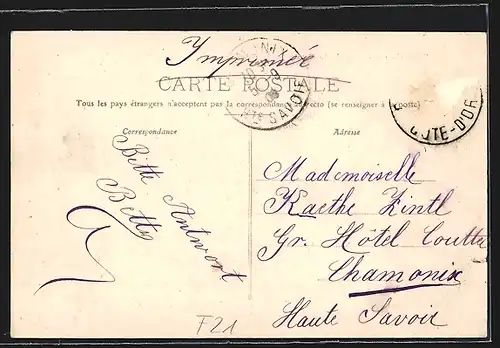 Imprimée
CARTE POSTALE
Tous les pays étrangers n'acceptent pas la correspondance au recto (se renseigner à la poste)
Correspondance
Adresse
HTE SAVOIE
CÔTE-D'OR
Bitte Antwort
Betty
Mademoiselle
Kaethe Zintl
Gr. Hôtel Coutta
Chamonix
Haute Savoie
F21